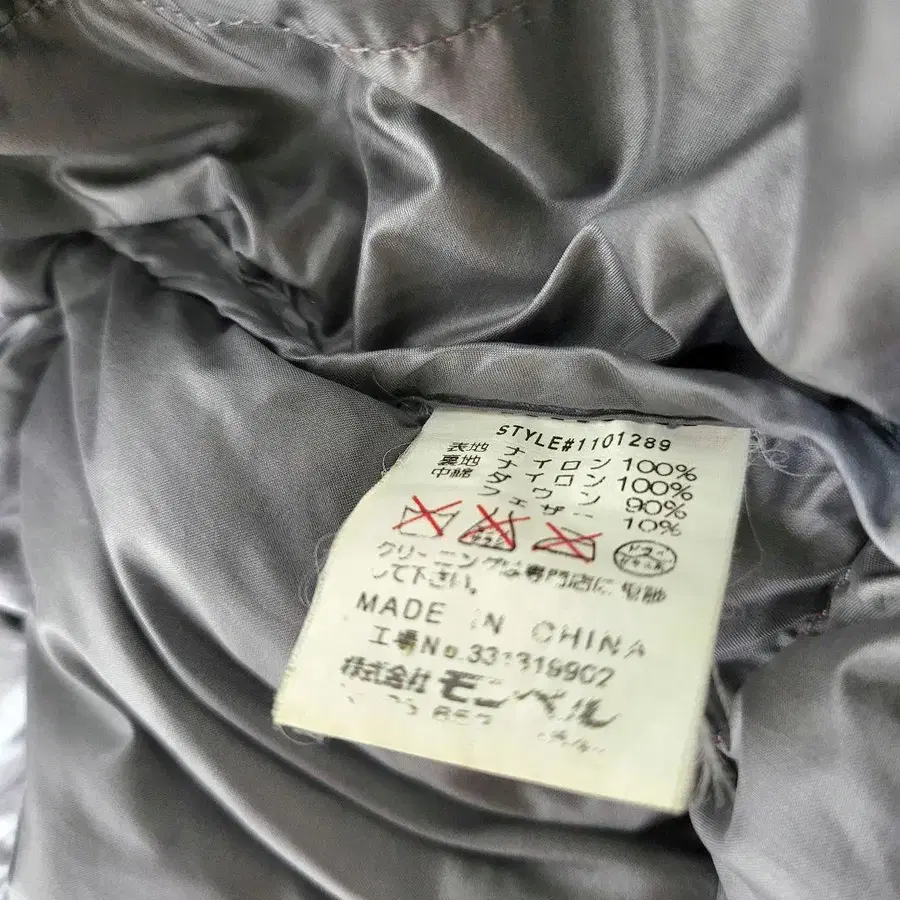 STYLE#1101289
表地 ナイロン 100%
裏地 ナイロン 100%
中綿 ダウン 90%
フェザー 10%
ドライ
クリーニングは専門店に
して下さい。
MADE IN CHINA
工場No.331319902
株式会社 モンベル